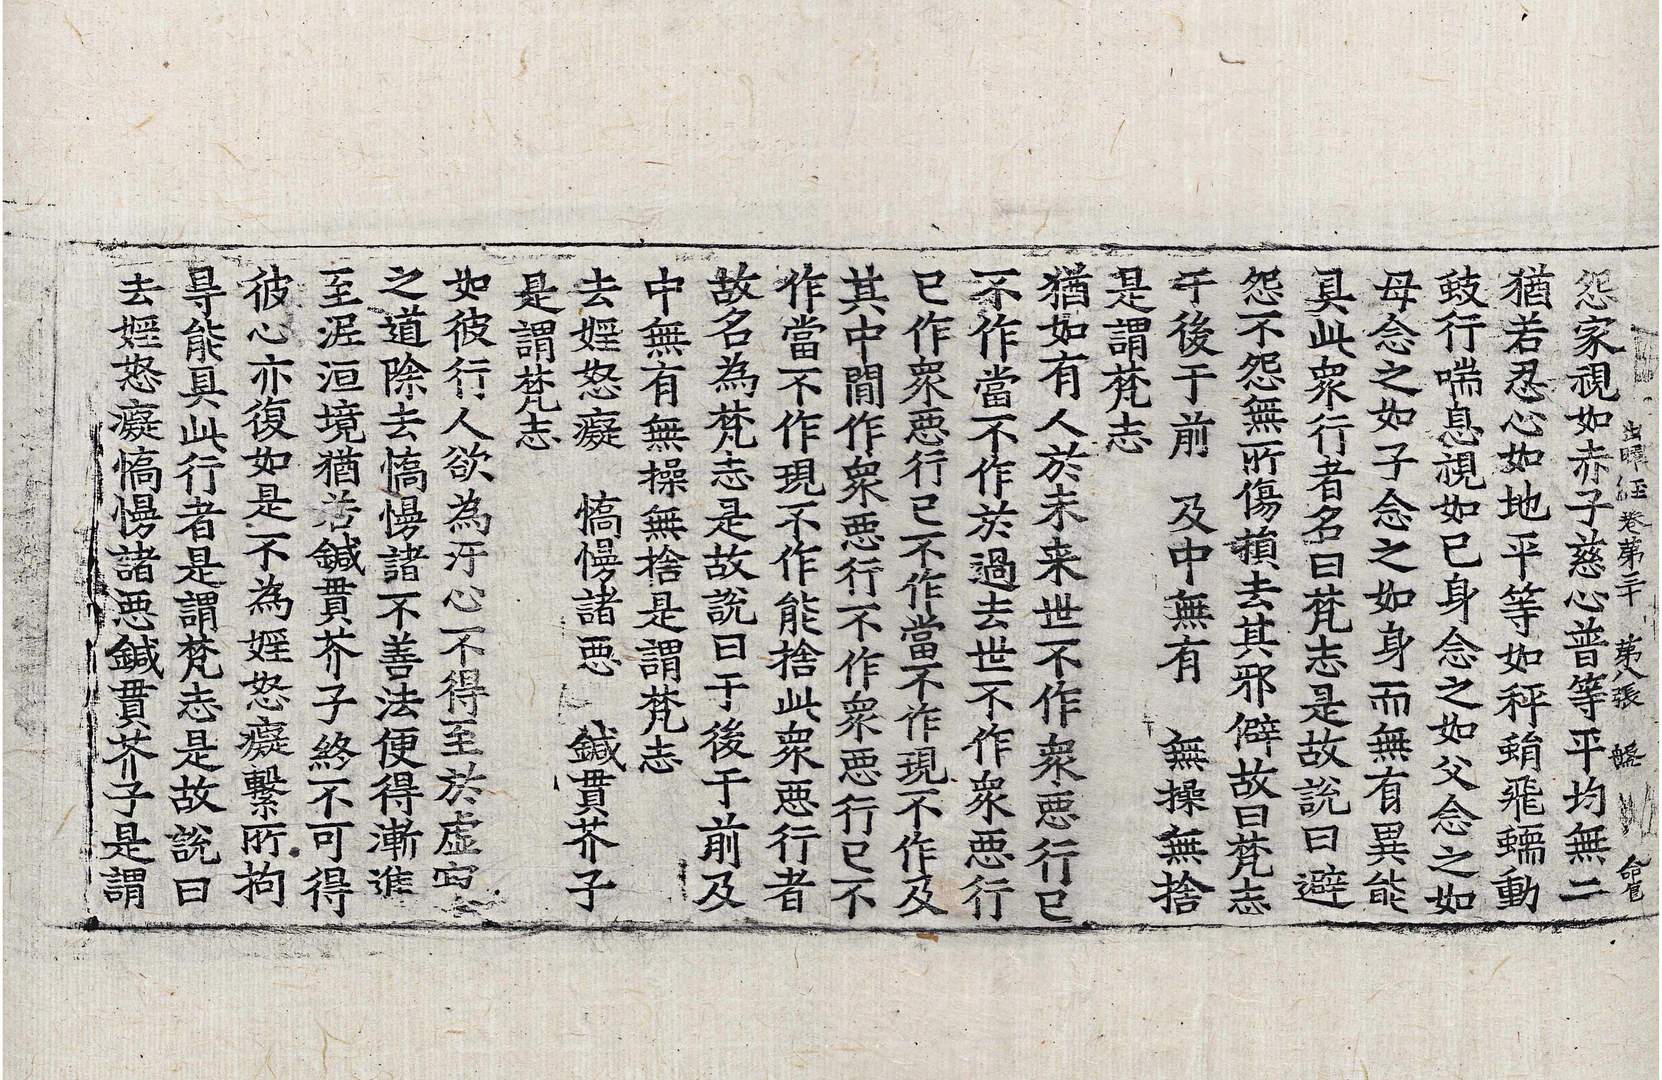 出曜経卷第三十 第八張 盤 命官
怨家視如赤子慈心普等平均無二
猶若忍心如地平等如秤蜎飛蠕動
䟸行喘息視如己身念之如父念之如
母念之如子念之如身而無有異能
具此衆行者名曰梵志是故說曰避
怨不怨無所傷損去其邪僻故曰梵志
于後于前 及中無有 無操無捨
是謂梵志
猶如有人於未来世不作衆惡行已
不作當不作於過去世不作衆惡行
已作衆惡行已不作當不作現不作及
其中間作衆惡行不作衆惡行已不
作當不作現不作能捨此衆惡行者
故名為梵志是故說曰于後于前及
中無有無操無捨是謂梵志
去婬怒癡 憍慢諸惡 鍼貫芥子
是謂梵志
如彼行人欲為汙心不得至於虛空
之道除去憍慢諸不善法便得漸進
至泥洹境猶若鍼貫芥子終不可得
彼心亦復如是不為婬怒癡繫所拘
㝵能具此行者是謂梵志是故說曰
去婬怒癡憍慢諸惡鍼貫芥子是謂